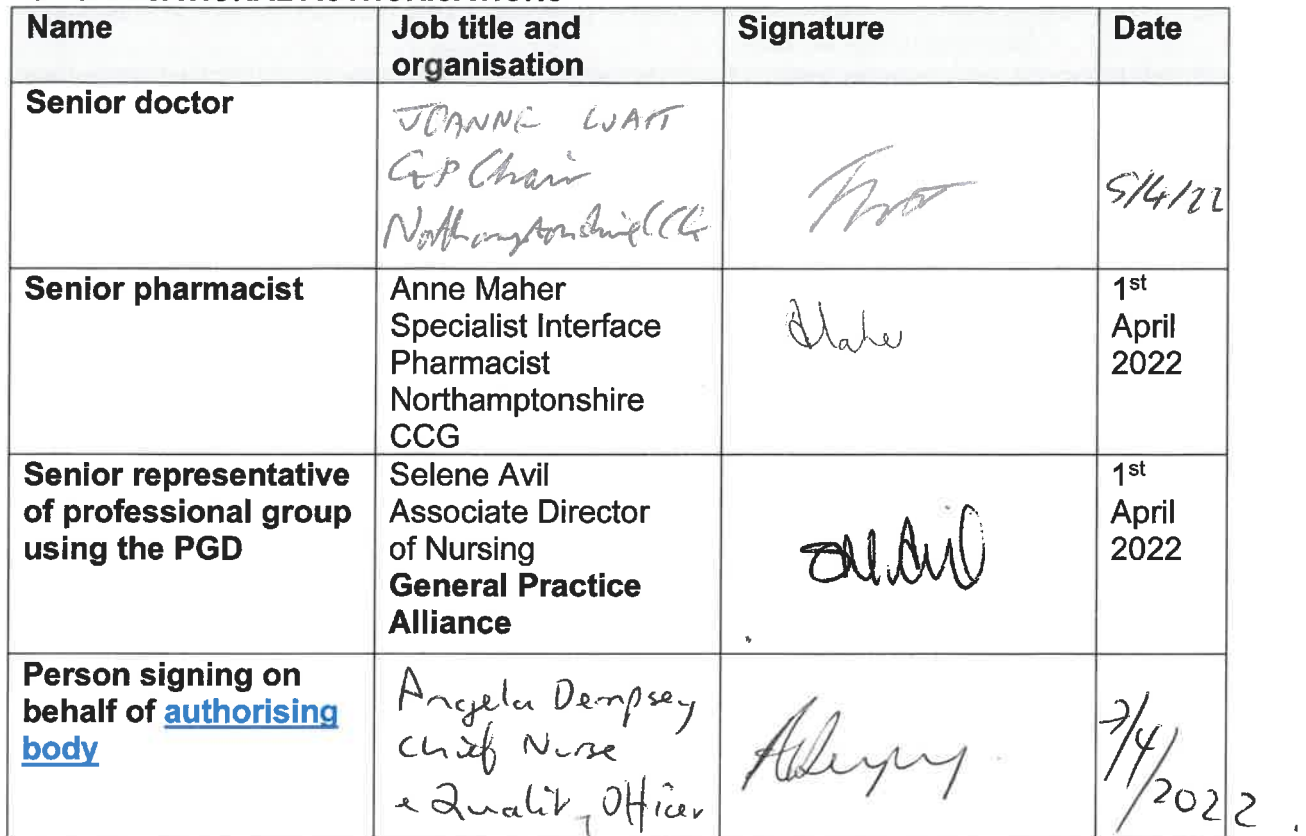 Name
Job title and
organisation
Signature
Date
Senior doctor
JOANNE WATT
GP Chair
Northamptonshire CCG
5/4/22
Senior pharmacist
Anne Maher
Specialist Interface
Pharmacist
Northamptonshire
CCG
AMaher
1st
April
2022
Senior representative
of professional group
using the PGD
Selene Avil
Associate Director
of Nursing
General Practice
Alliance
1st
April
2022
Person signing on
behalf of authorising
body
Angela Dempsey
Chief Nurse
& Quality Officer
ADempsey
7/4/2022